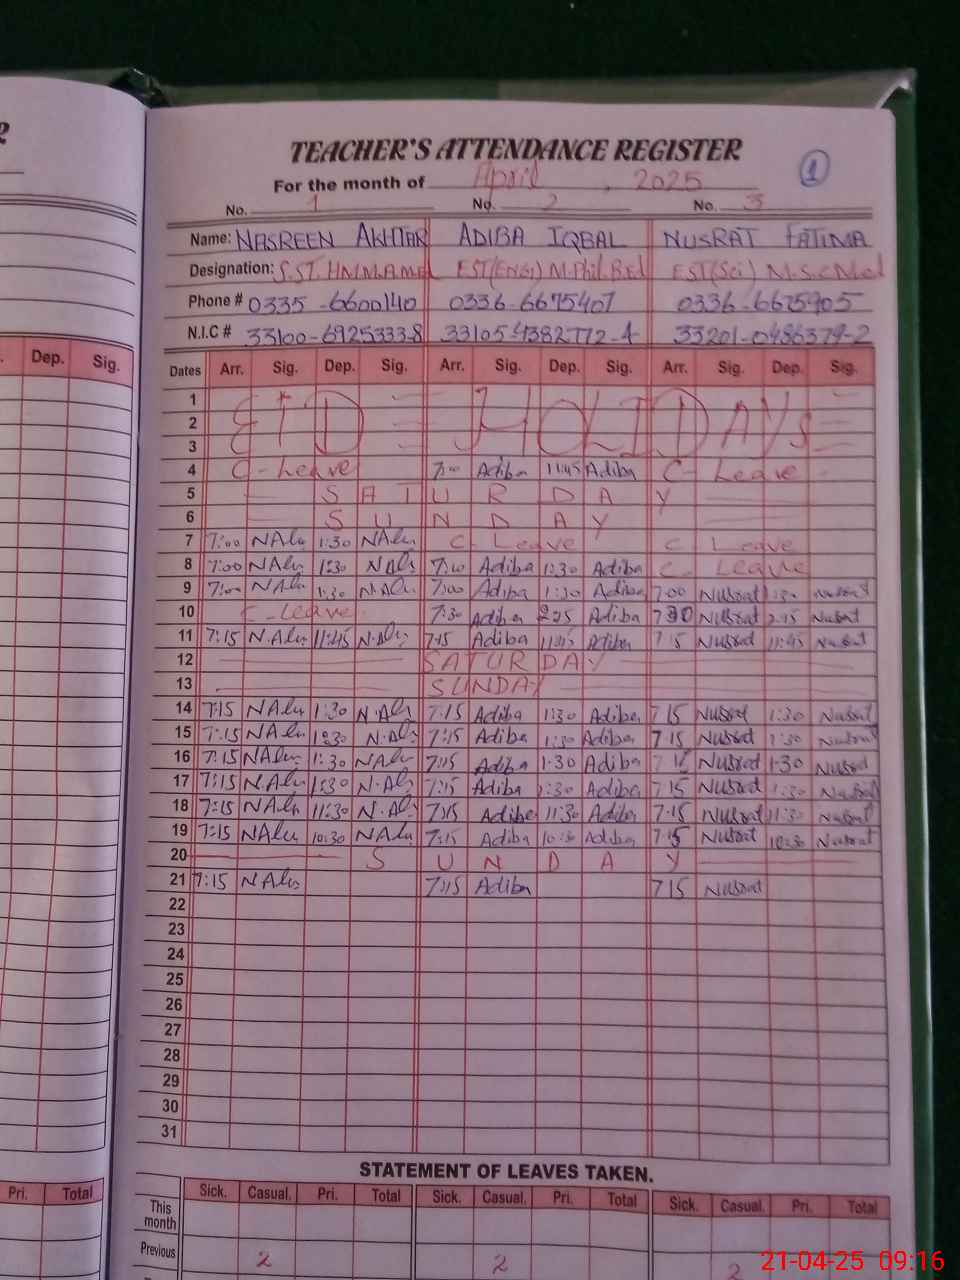 TEACHER'S ATTENDANCE REGISTER
For the month of April, 2025 1
No. 1 No. 2 No. 3
Name: NASREEN AKHTAR ADIBA IQBAL NUSRAT FATIMA
Designation: S.ST. H.M M.A M.Ed EST(Eng) M.Phil B.Ed EST(Sci) M.S.c M.ed
Phone # 0335-6600140 0336-6675407 0336-6675905
N.I.C # 33100-6925333-8 33105-4382772-4 33201-0486379-2
. Dep. Sig.
Dates Arr. Sig. Dep. Sig. Arr. Sig. Dep. Sig. Arr. Sig. Dep. Sig.
1
2 EID = HOLIDAYS =
3
4 C-Leave 7:00 Adiba 11:45 Adiba C-Leave
5 SATURDAY
6 SUNDAY
7 7:00 NAlu 1:30 NAlu C-Leave C Leave
8 7:00 NAlu 1:30 NAlu 7:00 Adiba 1:30 Adiba C-Leave
9 7:00 NAlu 1:30 N.Alu 7:00 Adiba 1:30 Adiba 7:00 Nusrat 1:30 Nusrat
10 C-Leave 7:30 Adiba 2:25 Adiba 7:30 Nusrat 2:15 Nusrat
11 7:15 N.Alu 11:45 N.Alu 7:15 Adiba 11:45 Adiba 7:15 Nusrat 11:45 Nusrat
12 SATURDAY
13 SUNDAY
14 7:15 NAlu 1:30 N.Alu 7:15 Adiba 1:30 Adiba 7:15 Nusrat 1:30 Nusrat
15 7:15 NAlu 1:30 N.Alu 7:15 Adiba 1:30 Adiba 7:15 Nusrat 1:30 Nusrat
16 7:15 NAlu 1:30 NAlu 7:15 Adiba 1:30 Adiba 7:15 Nusrat 1:30 Nusrat
17 7:15 N.Alu 1:30 N.Alu 7:15 Adiba 1:30 Adiba 7:15 Nusrat 1:30 Nusrat
18 7:15 NAlu 11:30 N.Alu 7:15 Adiba 11:30 Adiba 7:15 Nusrat 11:30 Nusrat
19 7:15 NAlu 10:30 NAlu 7:15 Adiba 10:30 Adiba 7:15 Nusrat 10:30 Nusrat
20 SUNDAY
21 7:15 NAlu 7:15 Adiba 7:15 Nusrat
22
23
24
25
26
27
28
29
30
31
STATEMENT OF LEAVES TAKEN.
Pri. Total Sick. Casual. Pri. Total Sick. Casual. Pri. Total Sick. Casual. Pri. Total
This month
Previous 2 2 2
21-04-25 09:16